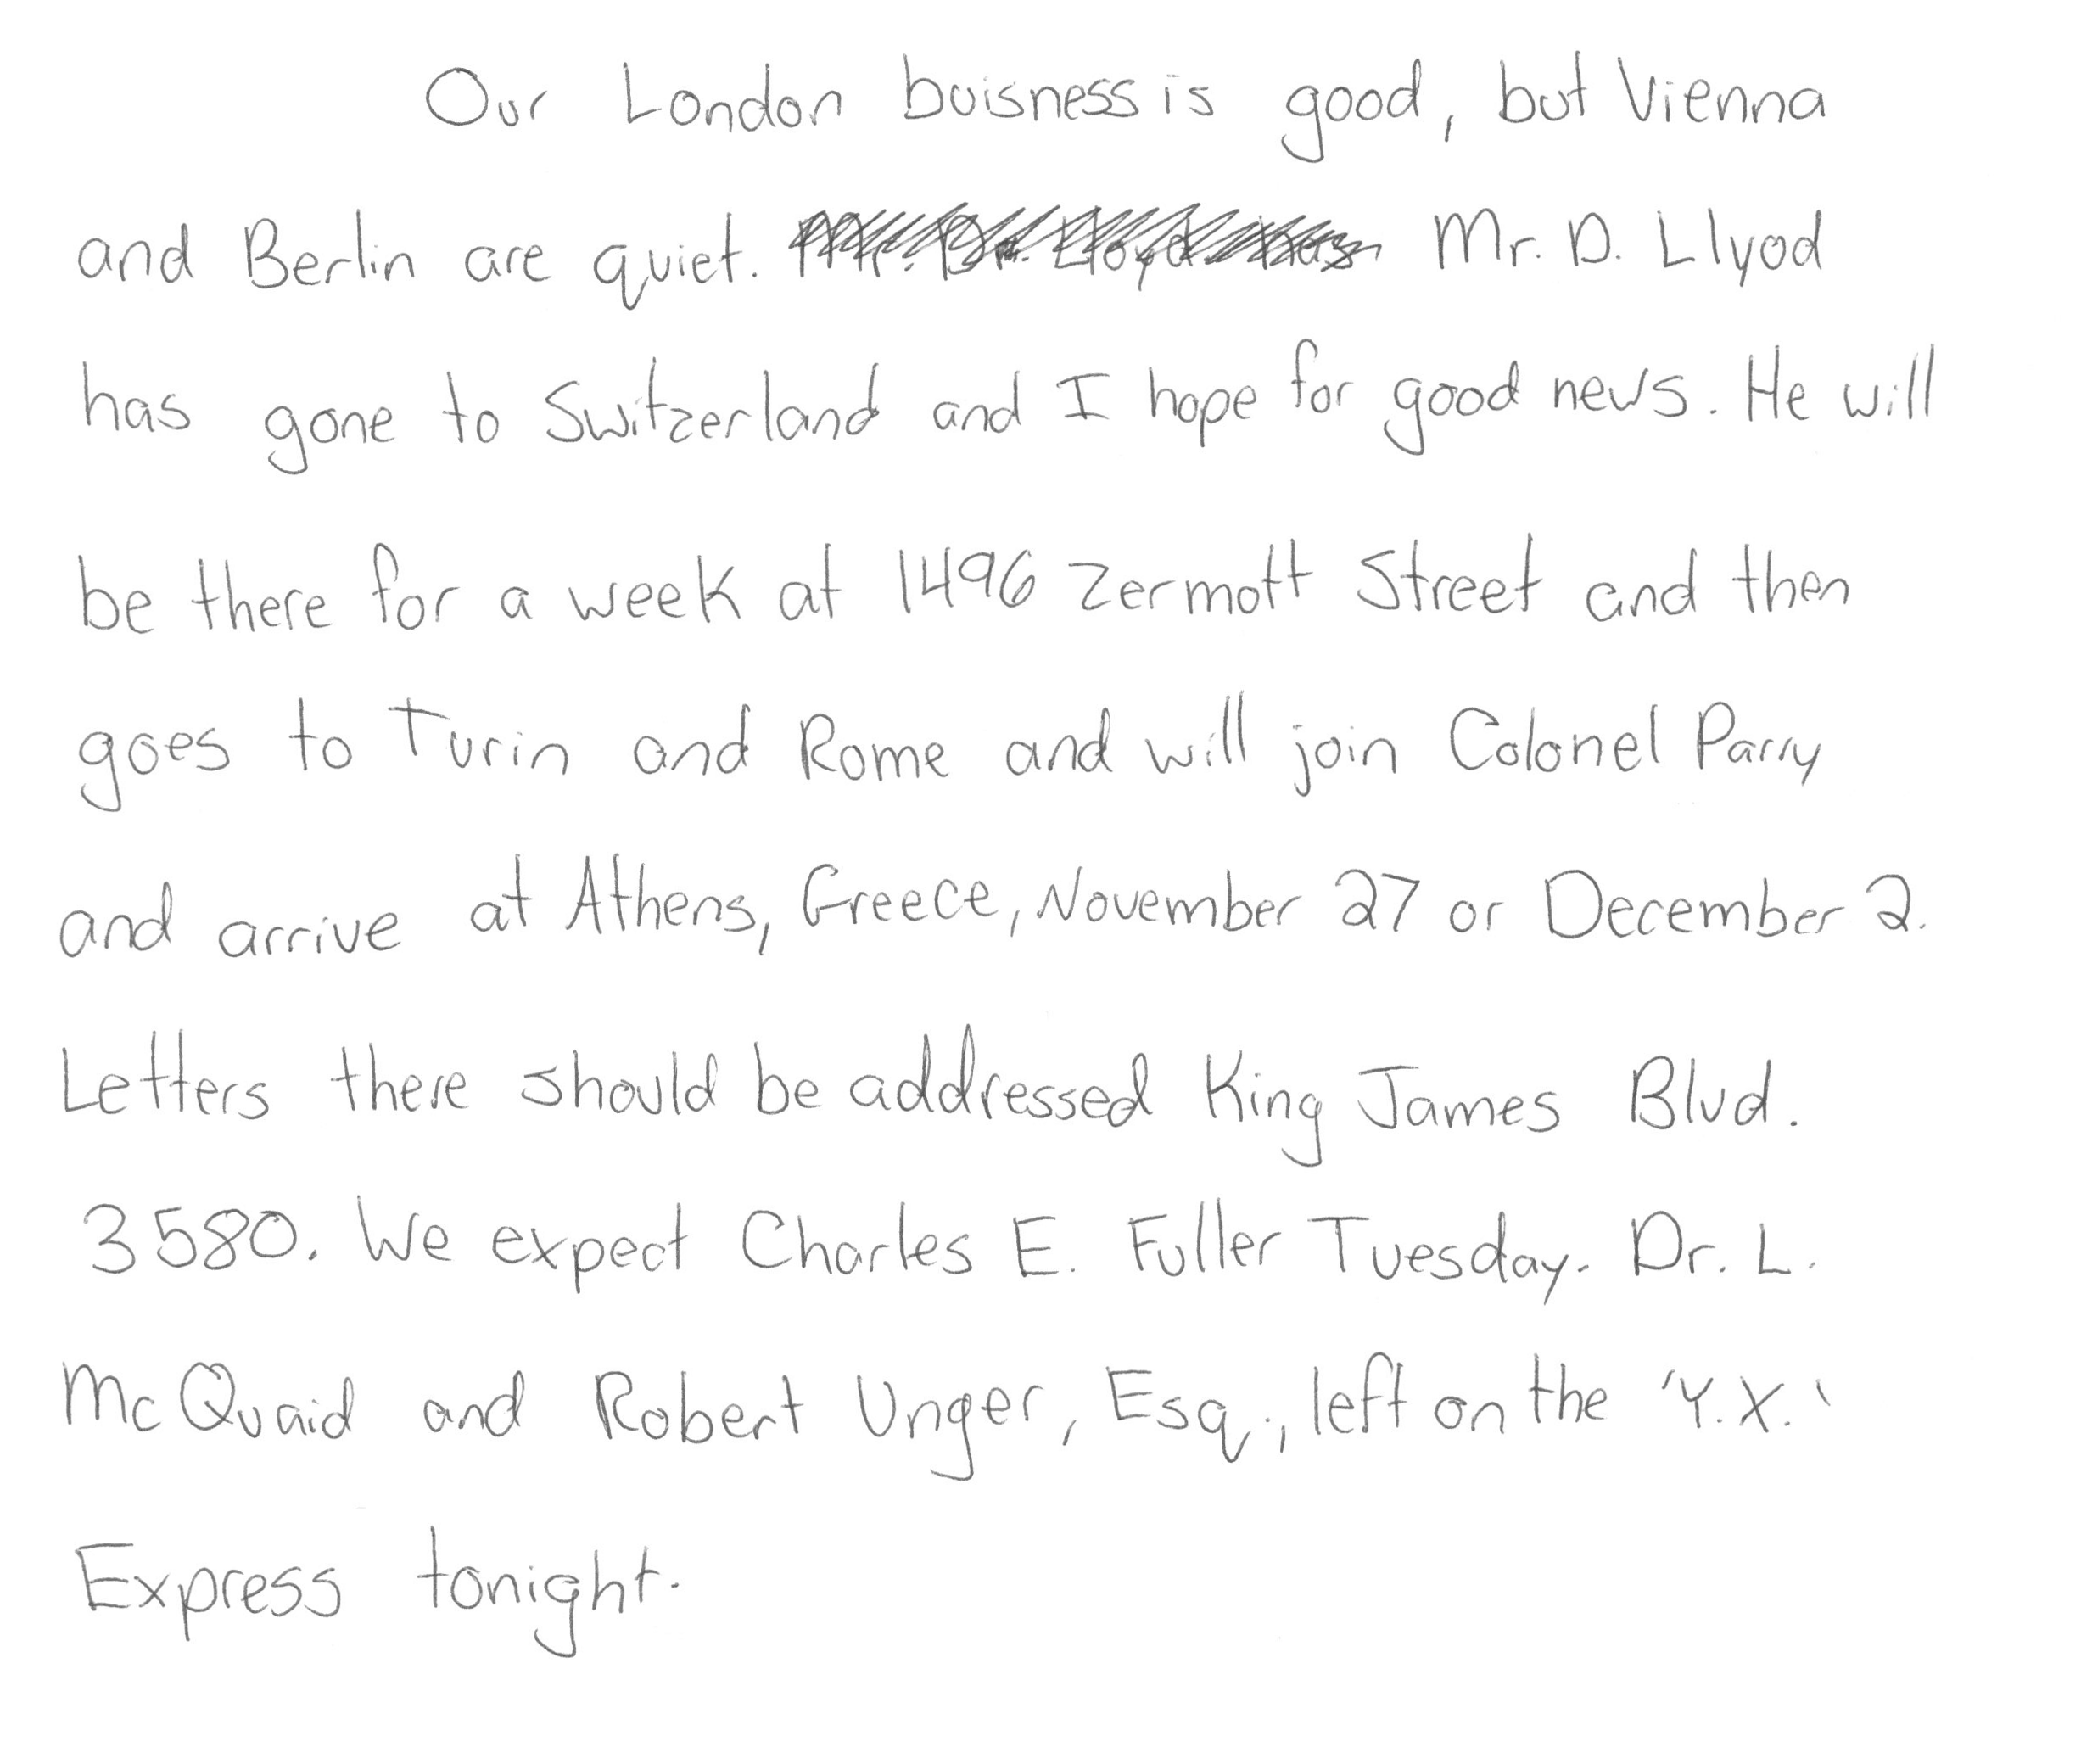 Our London buisness is good, but Vienna
and Berlin are quiet. Mr. D. Llyod
has gone to Switzerland and I hope for good news. He will
be there for a week at 1496 Zermott Street and then
goes to Turin and Rome and will join Colonel Parry
and arrive at Athens, Greece, November 27 or December 2.
Letters there should be addressed King James Blvd.
3580. We expect Charles E. Fuller Tuesday. Dr. L.
McQuaid and Robert Unger, Esq., left on the 'Y.X.'
Express tonight.